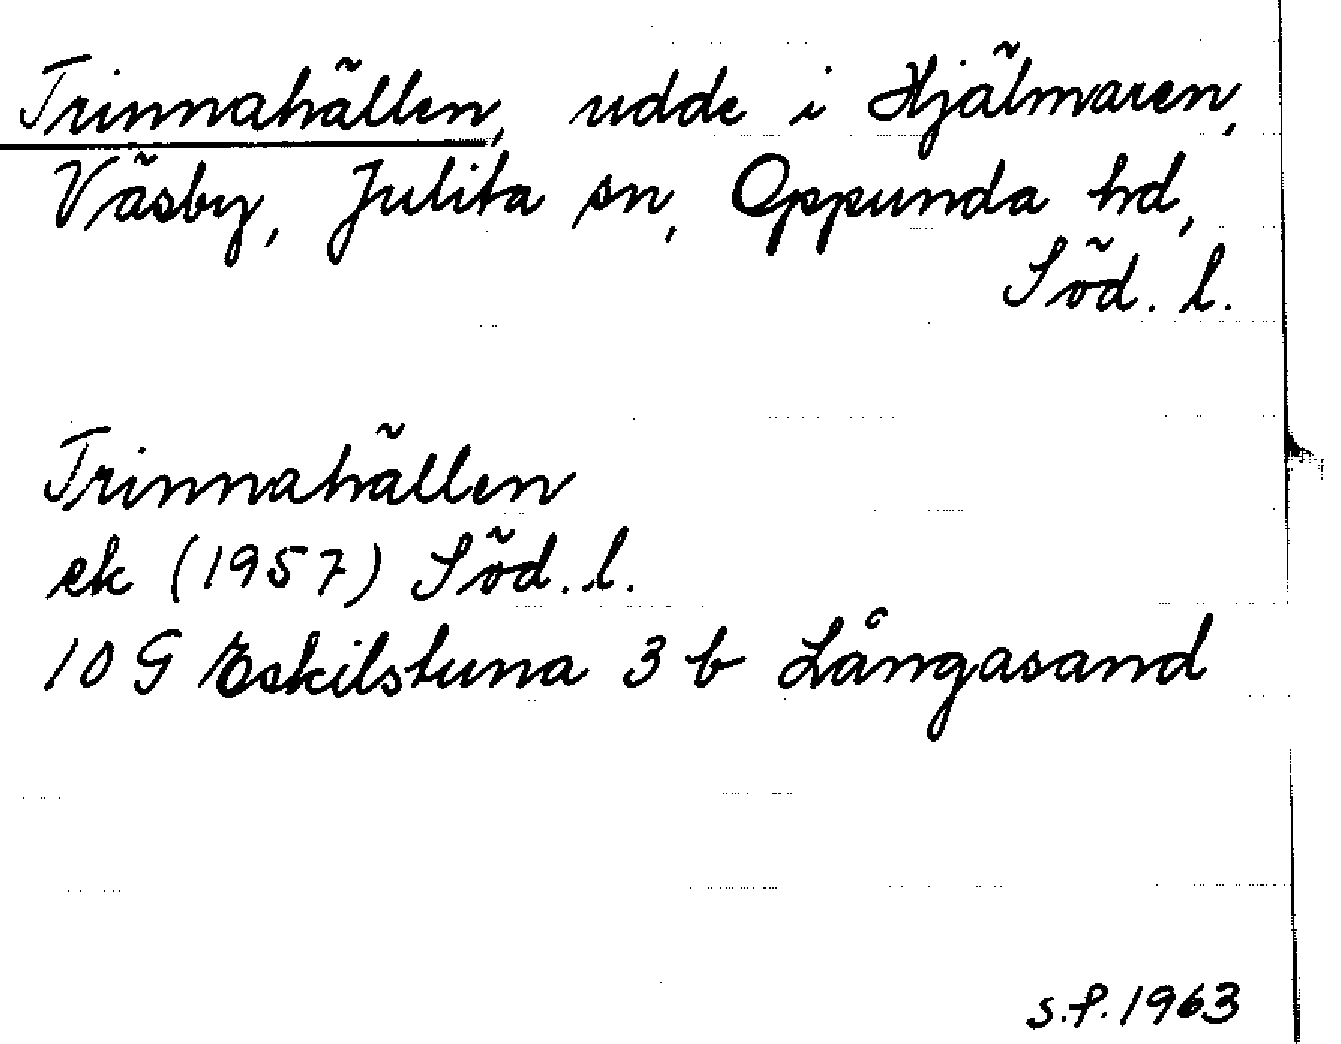 Trinnahällen, udde i Hjälmaren,
Väsby, Julita sn, Oppunda hd,
Söd. l.
Trinnahällen
ek (1957) Söd. l.
10 G Eskilstuna 3 b Långasand
S.P. 1963